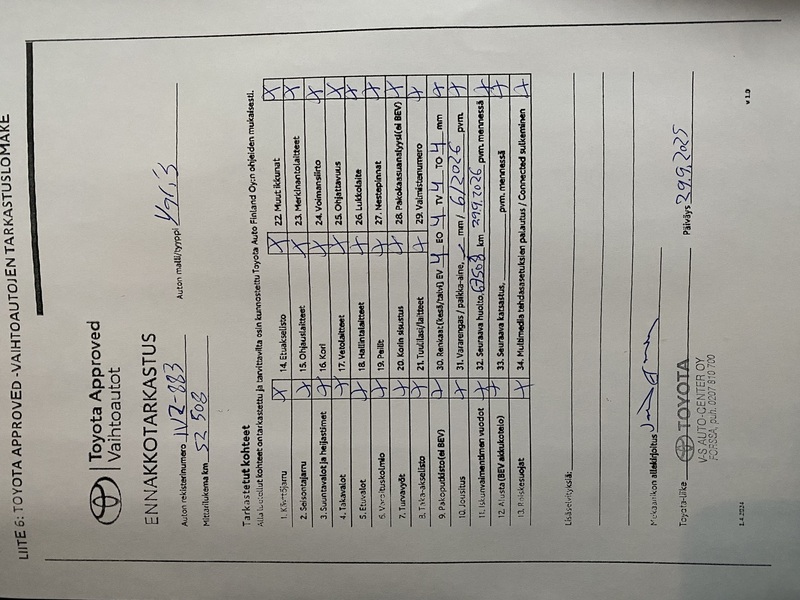 LIITE 6: TOYOTA APPROVED -VAIHTOAUTOJEN TARKASTUSLOMAKE
Toyota Approved
Vaihtoautot
ENNAKKOTARKASTUS
Auton rekisterinumero IVZ-883 Auton malli/tyyppi Yaris
Mittarilukema km 52 508
Tarkastetut kohteet
Alla luetellut kohteet on tarkastettu ja tarvittavilta osin kunnostettu Toyota Auto Finland Oy:n ohjeiden mukaisesti.
1. Käyttöjarru X 14. Etuakselisto X 22. Muut ikkunat X
2. Seisontajarru X 15. Ohjauslaitteet X 23. Merkinantolaitteet X
3. Suuntavalot ja heijastimet X 16. Kori X 24. Voimansiirto X
4. Takavalot X 17. Vetolaitteet X 25. Ohjattavuus X
5. Etuvalot X 18. Hallintalaitteet X 26. Lukkolaite X
6. Varoituskolmio X 19. Peilit X 27. Nestepinnat X
7. Turvavyöt X 20. Korin sisustus X 28. Pakokaasuanalyysi(ei BEV) X
8. Taka-akselisto X 21. Tuulilasi/laitteet X 29. Valmistenumero X
9. Pakoputkisto(ei BEV) X 30. Renkaat (kesä/talvi) EV 4 EO 4 TV 4 TO 4 mm X
10. Jousitus X 31. Vararengas / paikka-aine, mm / 6/2026 pvm. X
11. Iskunvaimentimien vuodot X 32. Seuraava huolto, 67508 km 29.9.2026 pvm. mennessä X
12. Alusta (BEV akkukotelo) X 33. Seuraava katsastus, pvm. mennessä X
13. Roiskesuojat X 34. Multimedia tehdasasetuksien palautus / Connected sulkeminen X
Lisäselvityksiä:
Mekaanikon allekirjoitus
Toyota-liike TOYOTA Päiväys 29.9.2025
V-S AUTO-CENTER OY
FORSSA, puh. 0207 810 700
1.4.2024 v 1.0